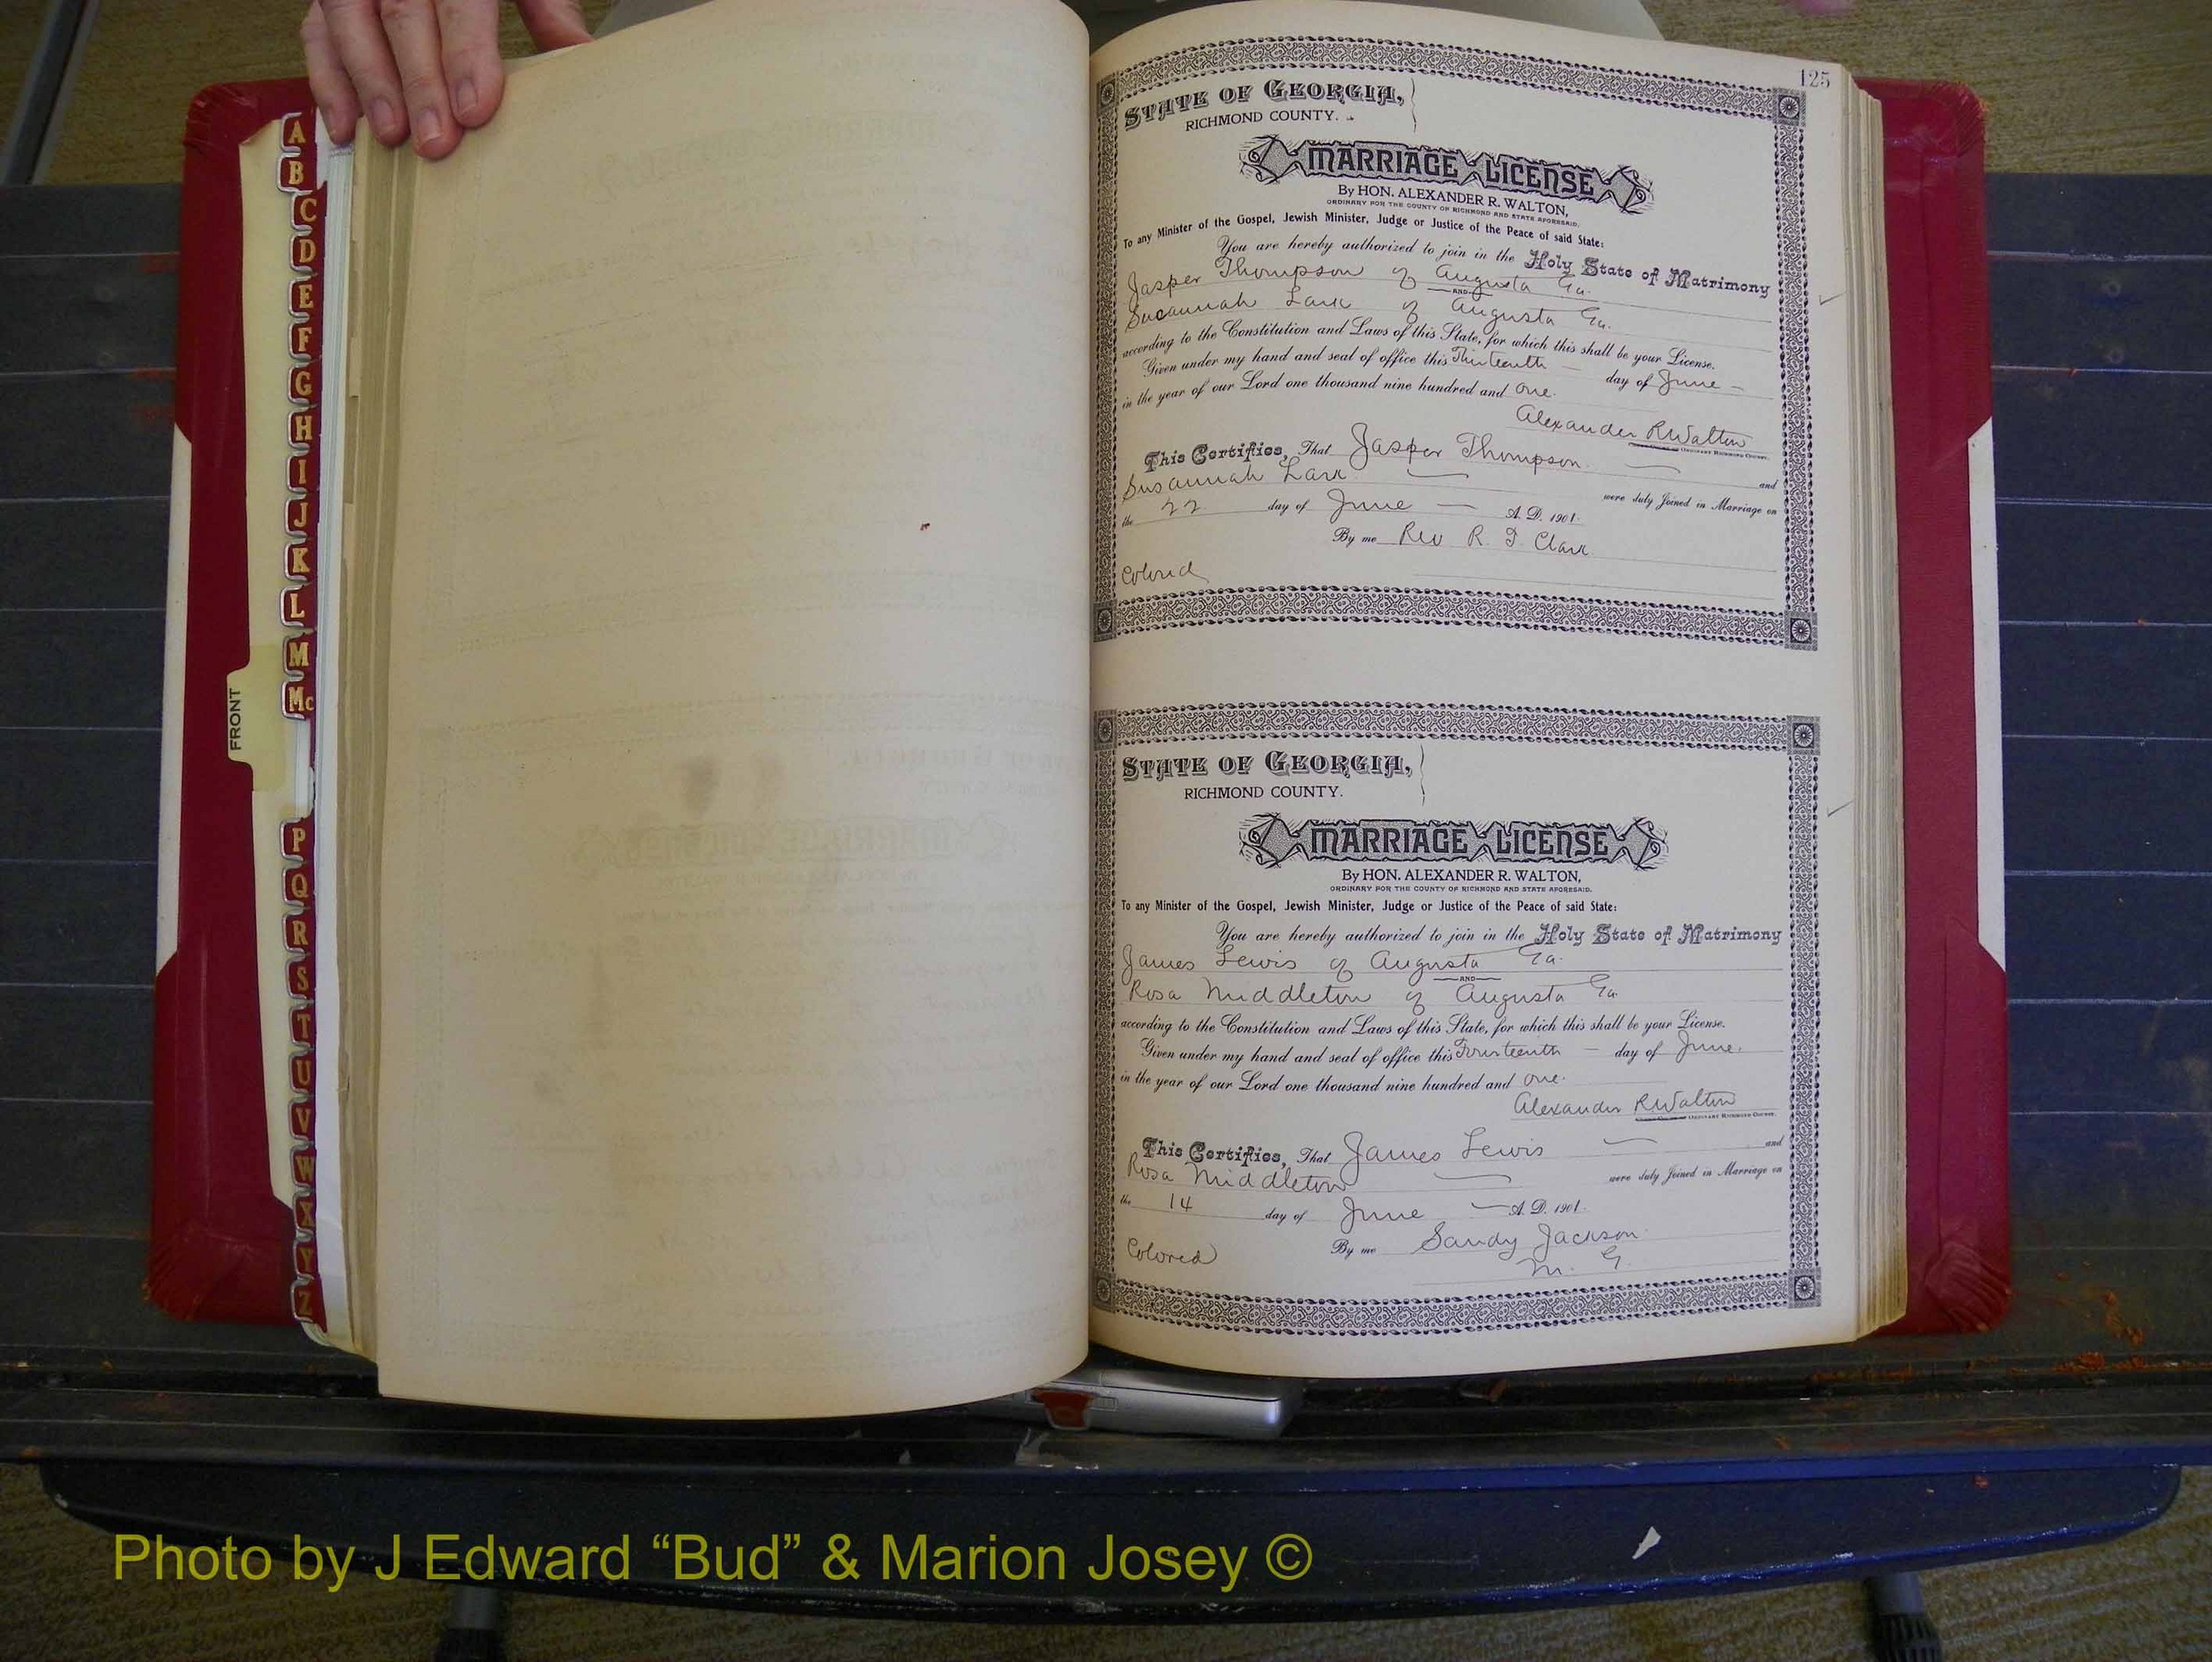 A
B
C
D
E
F
G
H
I
J
K
L
M
Mc
P
Q
R
S
T
U
V
W
X
Y
Z
FRONT
125
STATE OF GEORGIA,
RICHMOND COUNTY.
MARRIAGE LICENSE
By HON. ALEXANDER R. WALTON,
ORDINARY FOR THE COUNTY OF RICHMOND AND STATE AFORESAID.
To any Minister of the Gospel, Jewish Minister, Judge or Justice of the Peace of said State:
You are hereby authorized to join in the Holy State of Matrimony
Jasper Thompson of Augusta Ga.
AND
Susannah Lark of Augusta Ga.
according to the Constitution and Laws of this State, for which this shall be your License.
Given under my hand and seal of office this Thirteenth day of June
in the year of our Lord one thousand nine hundred and One.
Alexander R Walton
ORDINARY RICHMOND COUNTY.
This Certifies, That Jasper Thompson and
Susannah Lark were duly Joined in Marriage on
the 22 day of June A. D. 1901.
By me Rev R. T. Clark
Colored
STATE OF GEORGIA,
RICHMOND COUNTY.
MARRIAGE LICENSE
By HON. ALEXANDER R. WALTON,
ORDINARY FOR THE COUNTY OF RICHMOND AND STATE AFORESAID.
To any Minister of the Gospel, Jewish Minister, Judge or Justice of the Peace of said State:
You are hereby authorized to join in the Holy State of Matrimony
James Lewis of Augusta Ga.
AND
Rosa Middleton of Augusta Ga.
according to the Constitution and Laws of this State, for which this shall be your License.
Given under my hand and seal of office this Fourteenth day of June.
in the year of our Lord one thousand nine hundred and One.
Alexander R Walton
ORDINARY RICHMOND COUNTY.
This Certifies, That James Lewis and
Rosa Middleton were duly Joined in Marriage on
the 14 day of June A. D. 1901.
By me Sandy Jackson
Colored M. G.
Photo by J Edward “Bud” & Marion Josey ©